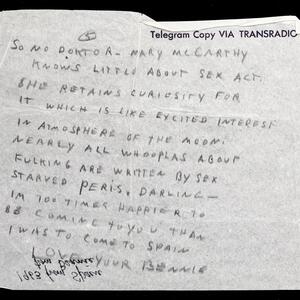 Telegram Copy VIA TRANSRADIO
SO NO DOKTOR - MARY MCCARTHY
KNOWS LITTLE ABOUT SEX ACT.
SHE RETAINS CURIOSITY FOR
IT WHICH IS LIKE EXCITED INTEREST
IN ATMOSPHERE OF THE MOON.
NEARLY ALL WHOOPLAS ABOUT
FUCKING ARE WRITTEN BY SEX
STARVED PERIS. DARLING -
IM 100 TIMES HAPPIER TO
BE COMING TO YOU THAN
I WAS TO COME TO SPAIN
YOUR BENNIE
1963 from Spain